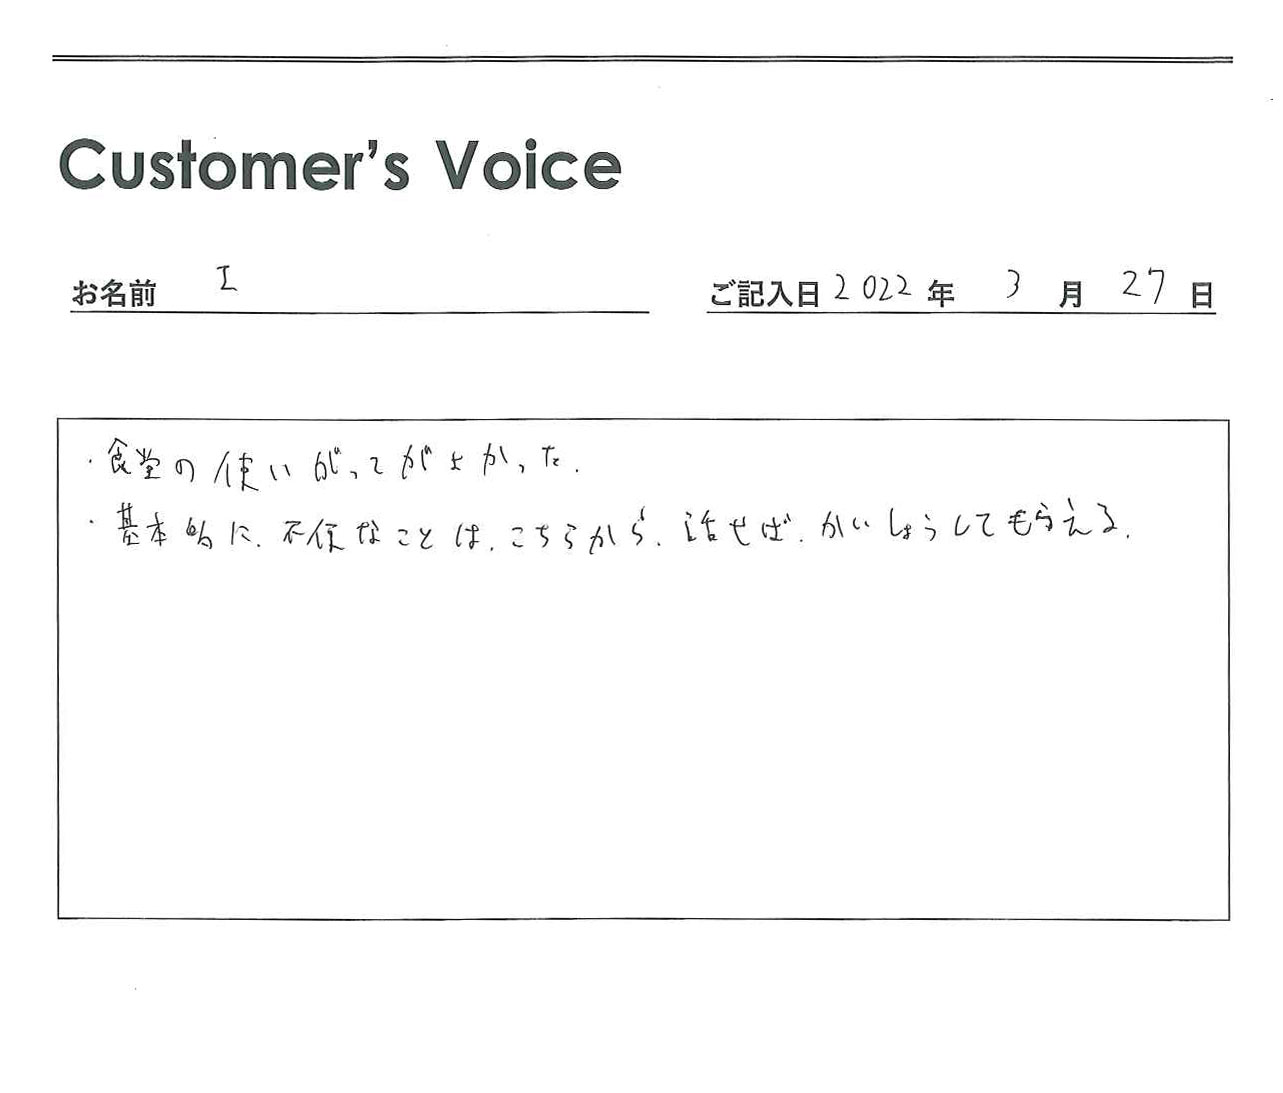 Customer's Voice
お名前 I
ご記入日 2022 年 3 月 27 日
・食堂の使いがってがよかった.
・基本的に.不便なことは.こちらから.話せば.かいしょうしてもらえる.